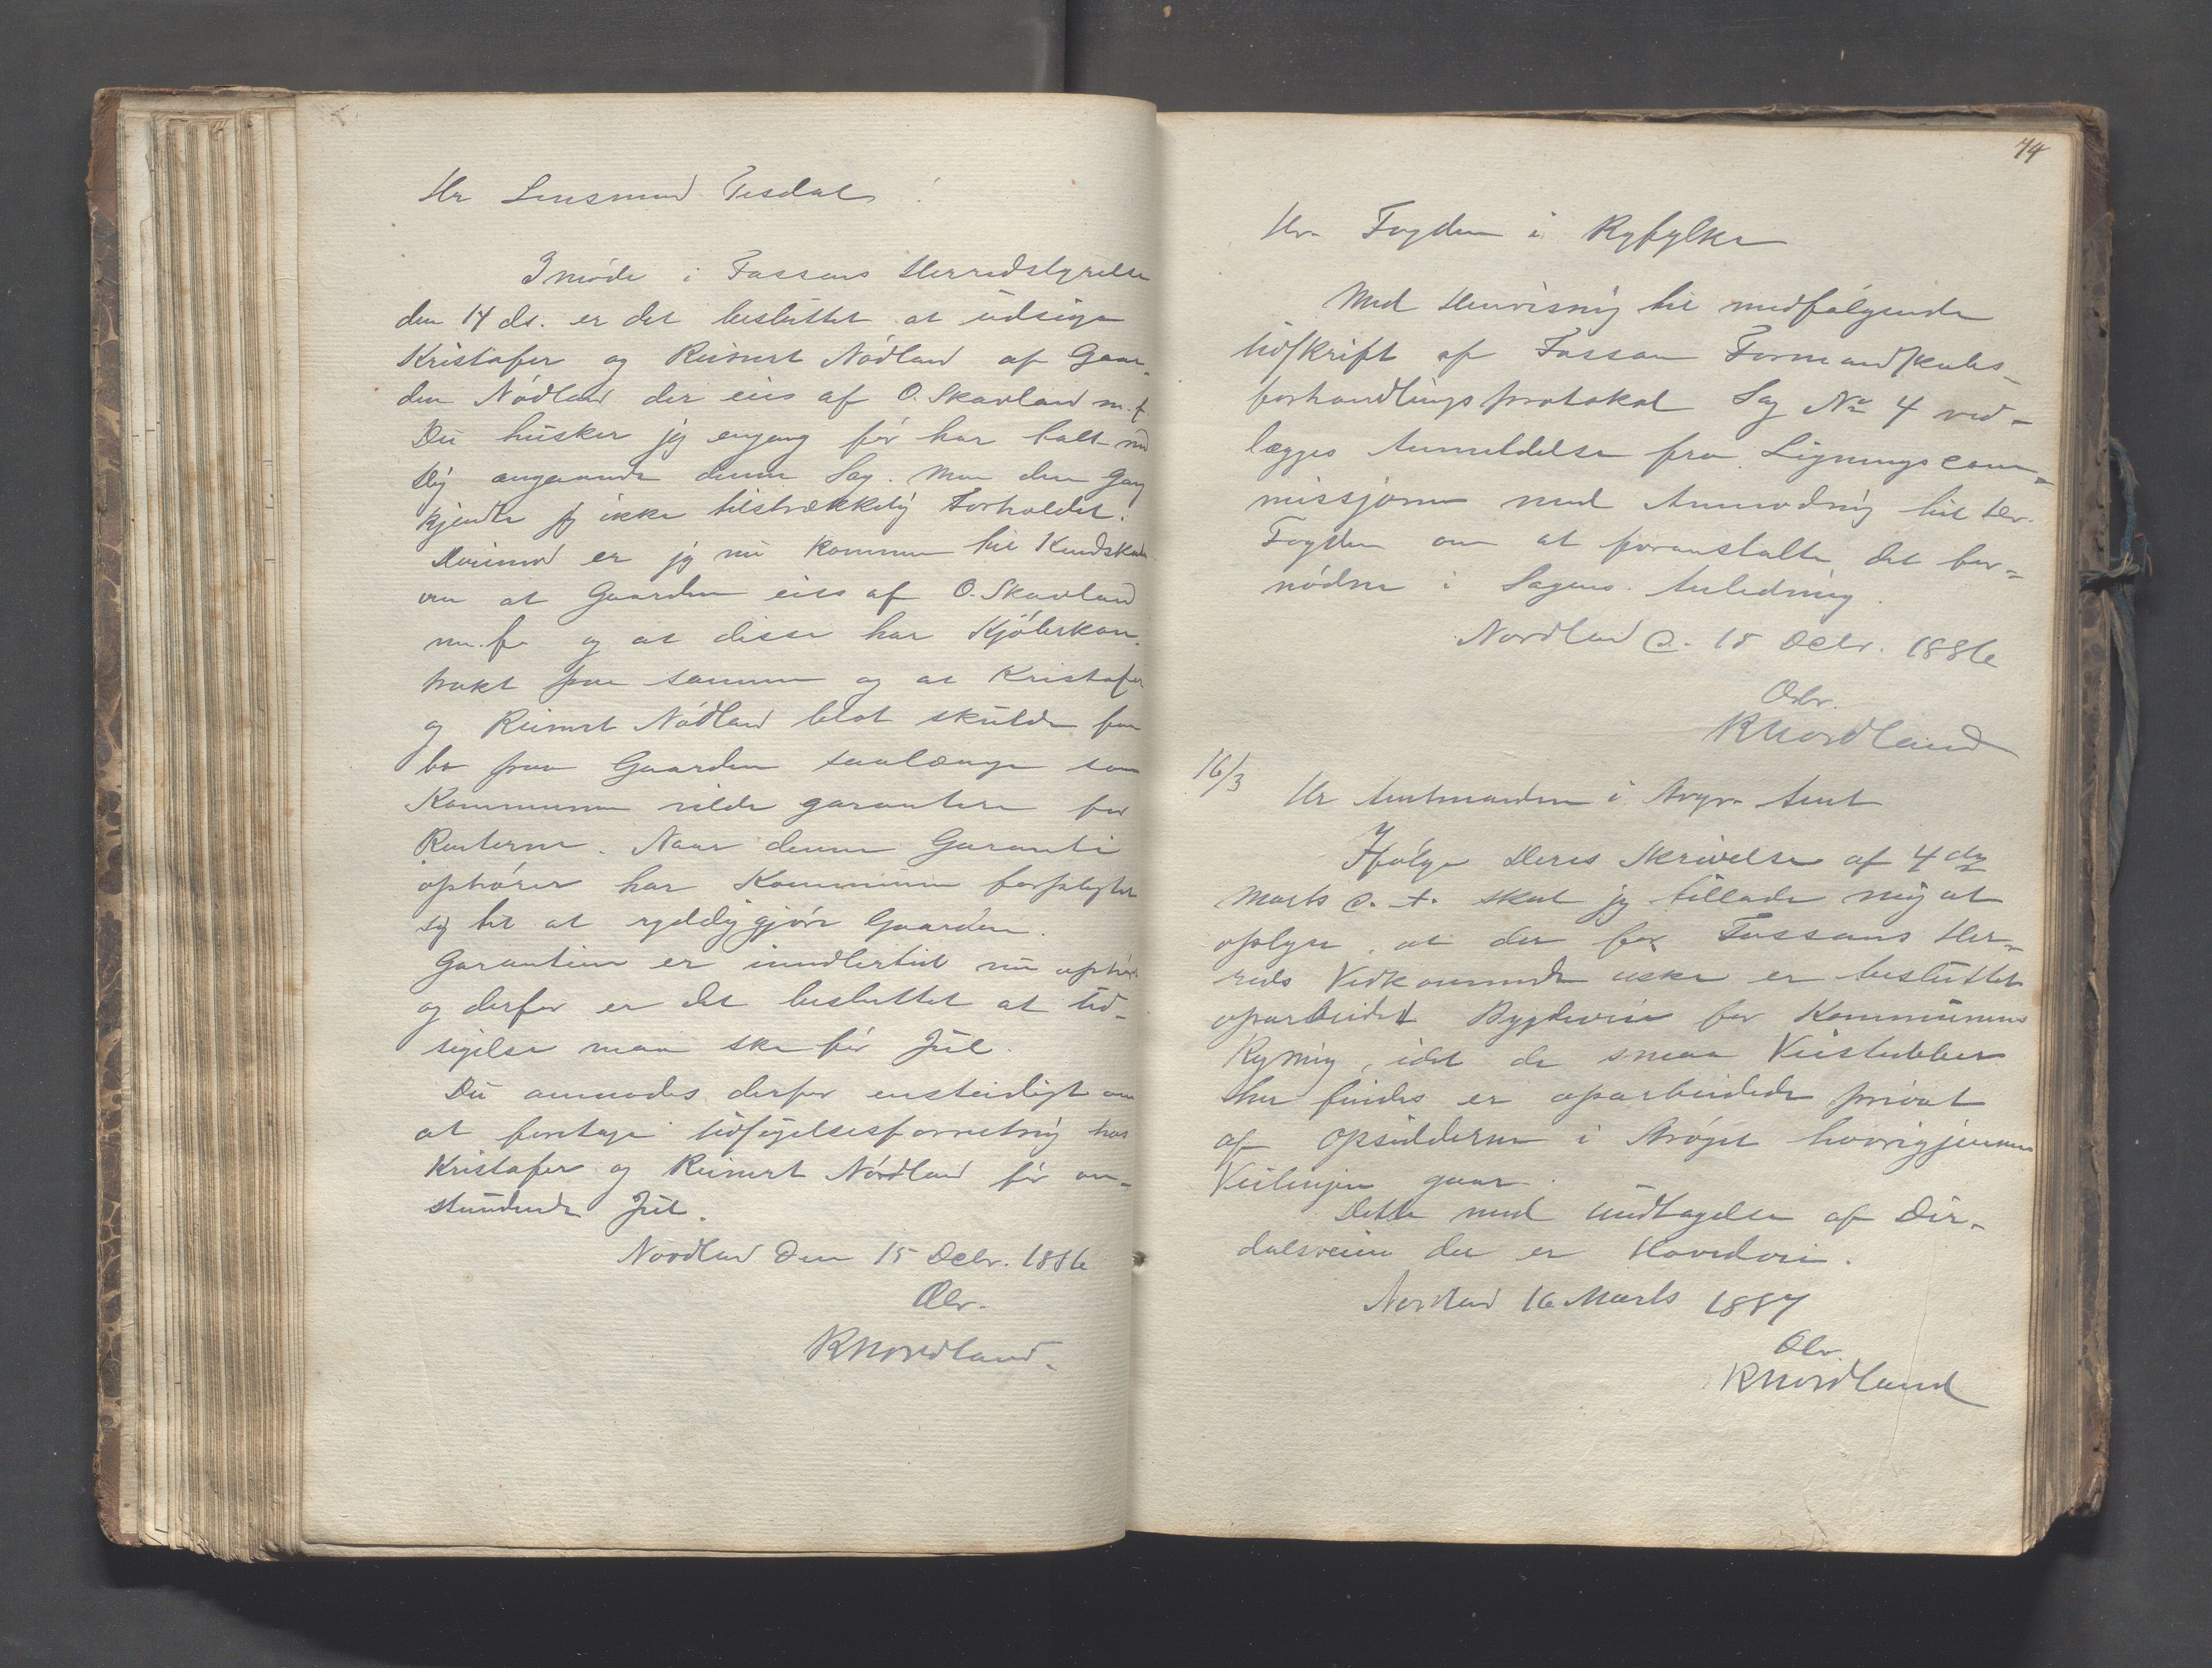 Hr Lensmand Tesdal!
I møde i Fossans Herredstyrelse
den 14 ds. er det besluttet at udsige
Kristofer og Reinert Nödland af Gaar-
den Nödland der eies af O. Skavland m.f.
Du husker jeg engang før har talt med
Dig angaaende denne Sag. Men den Gang
kjendte jeg ikke tilstrækkelig Forholdet.
Derimod er jeg nu kommen til Kundskab
om at Gaarden eies af O. Skavland
m.f. og at disse har Kjöberkon-
trakt paa samme og at Kristofer
og Reinert Nödland blot skulde faa
bo paa Gaarden saalænge som
Kommunen vilde garantere for
Renterne. Naar denne Garanti
ophörer har Kommunen forpligtet
sig til at ryddiggjöre Gaarden.
Garantien er imidlertid nu ophört
og derfor er det besluttet at Ud-
sigelse maa ske för Jul.
Du anmodes derfor ensteidigt om
at foretage Udsigelsesforretning hos
Kristofer og Reinert Nödland för an-
stundende Jul.
Nordland den 15 Decbr. 1886
Ærb.
RNordland.
74
Hr. Fogden i Ryfylke
Med Henvisning til medfølgende
Udskrift af Fossan Formandskabs-
forhandlingsprotokol Sag No 4 ved-
lægges Anmeldelse fra Ligningscom-
missjonen med Anmodning til Hr.
Fogden om at foranstalte det for-
nødne i Sagens Anledning.
Nordland d. 18 Decbr. 1886
Ærb.
RNordland
16/3
Hr Amtmanden i Stvgr. Amt
Ifølge Deres Skrivelse af 4 de
Marts d. A. skal jeg tillade mig at
oplyse, at der for Fossans Her-
reds Vedkommende ikke er besluttet
oparbeidet Bygdevei for Kommunens
Regning, idet de smaa Veistubber
her findes er oparbeidede privat
af Opsidderne i Ströget hvorigjennem
Veilinjen gaar.
Dette med Undtagelse af Dir-
dalsveien der er Hovedvei.
Nordland 16 Marts 1887
Ærb.
RNordland